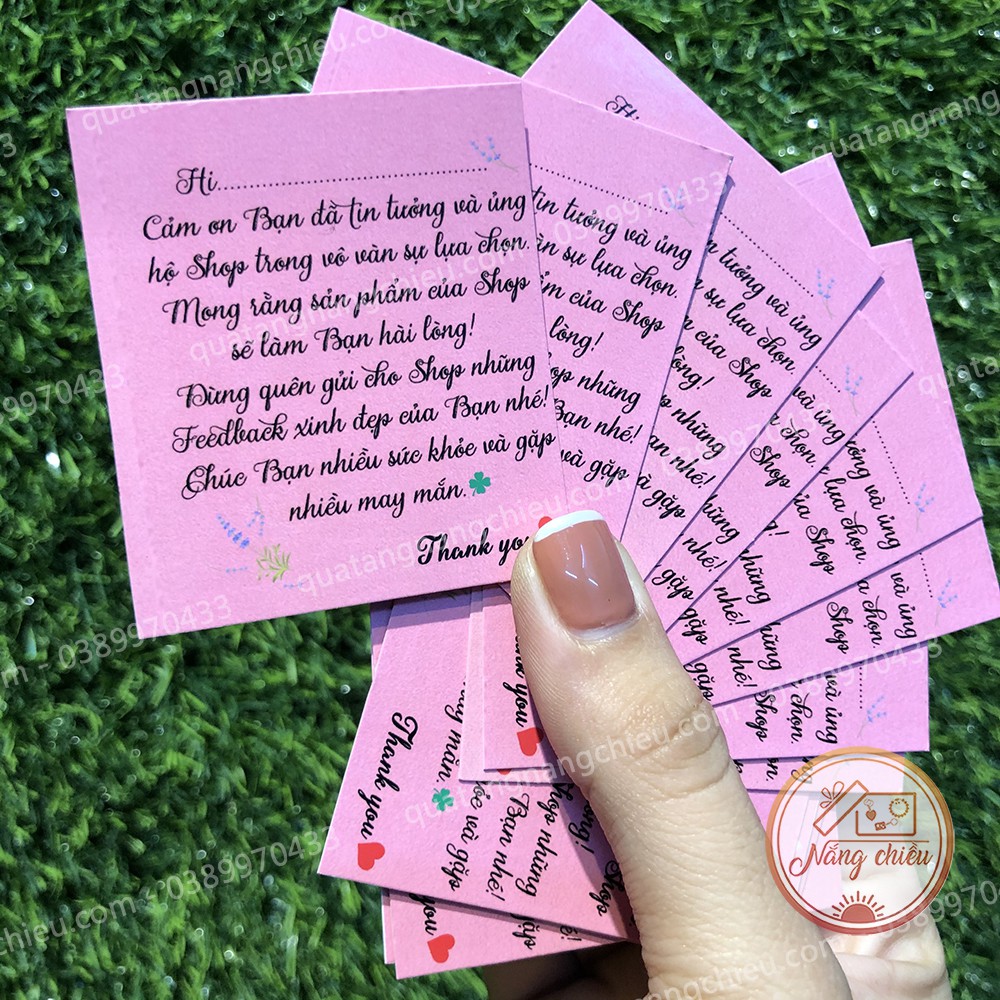 Hi
Cảm ơn Bạn đã tin tưởng và ủng
hộ Shop trong vô vàn sự lựa chọn.
Mong rằng sản phẩm của Shop
sẽ làm Bạn hài lòng!
Đừng quên gửi cho Shop những
Feedback xinh đẹp của Bạn nhé!
Chúc Bạn nhiều sức khỏe và gặp
nhiều may mắn.
Thank you
Nắng chiều
quatangnangchieu.com - 0389970433